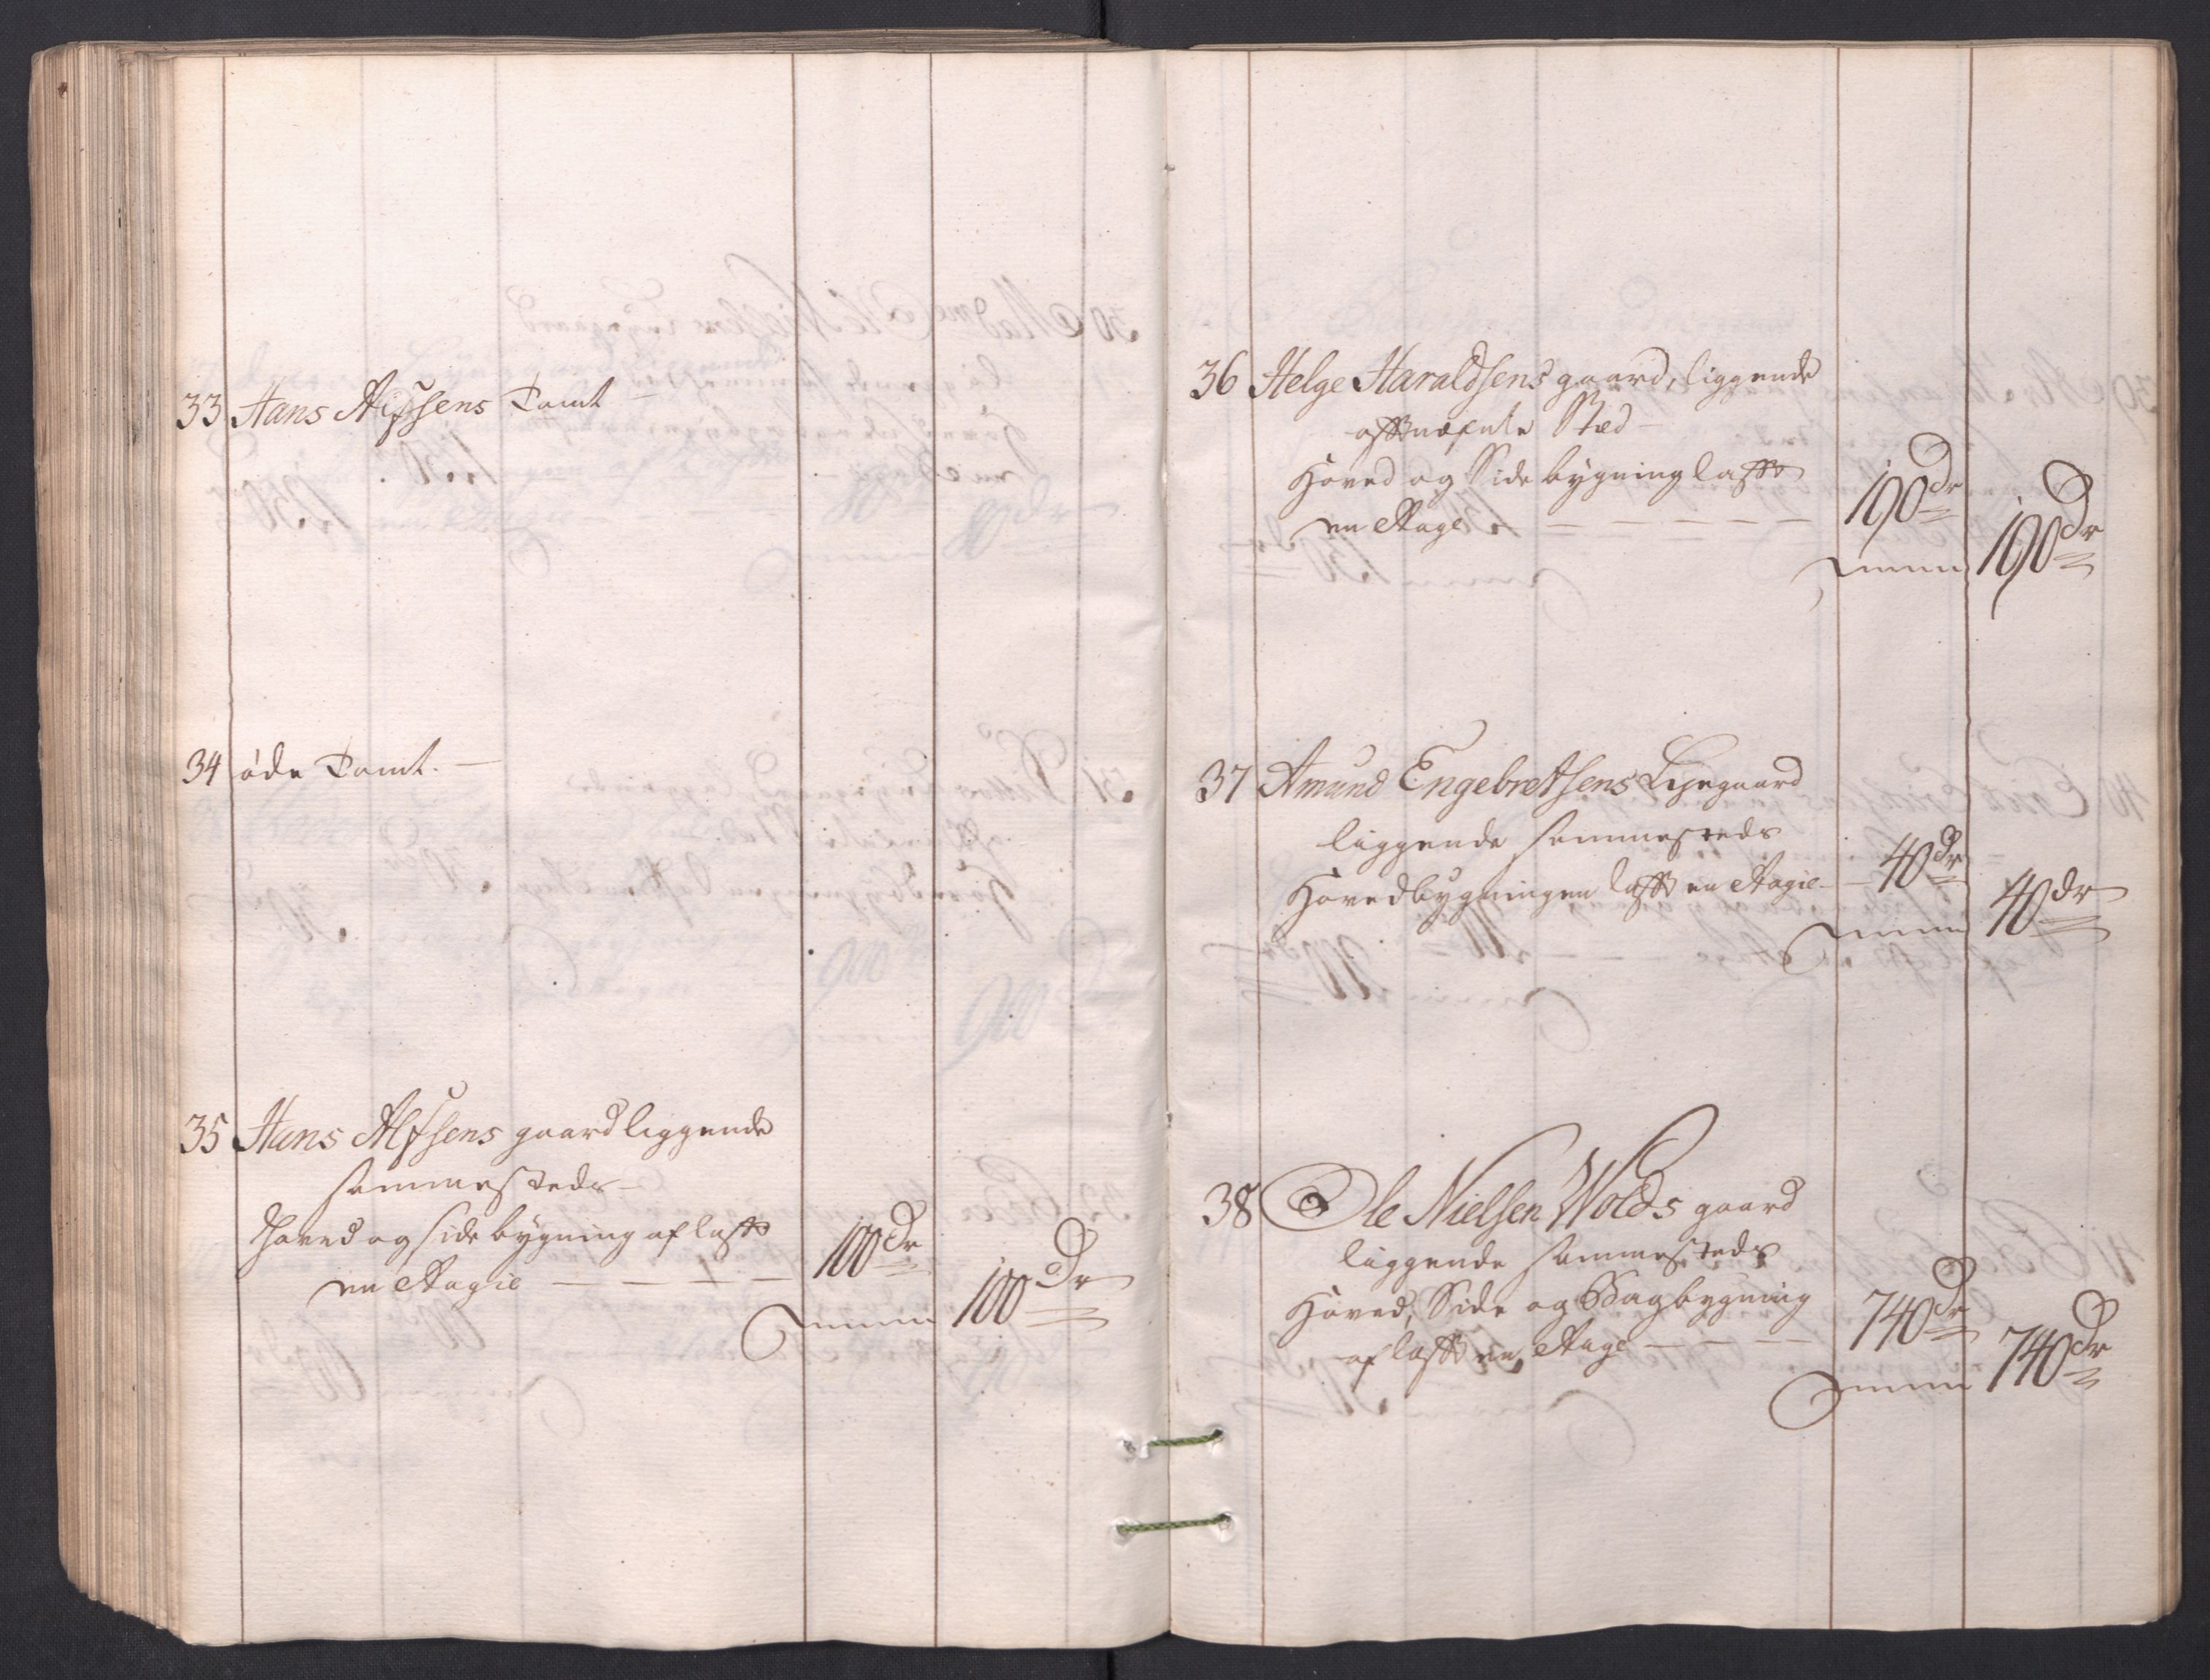 33 Hans Alfsens Tomt —
34 öde Tomt. —
35 Hans Alfsens gaard liggende
sammesteds —
Hoved og side bygning af laft
en Etagie — — — — 100 Dr
Summa 100 Dr
36 Helge Haraldsens gaard, liggende
oftnefnte Stæd —
Hoved og Side bygning laft
en Etage — — — — — 190 Dr
Summa 190 Dr
37 Amund Engebretsens Lyegaard
liggende sammesteds
Hovedbygningen laft en Etagie — 40 Dr
Summa 40 dr
38 Ole Nielsen Wolds gaard
liggende sammesteds
Hoved, Side og Bagbygning
af laft en Etage — — — 740 Dr
Summa 740 Dr